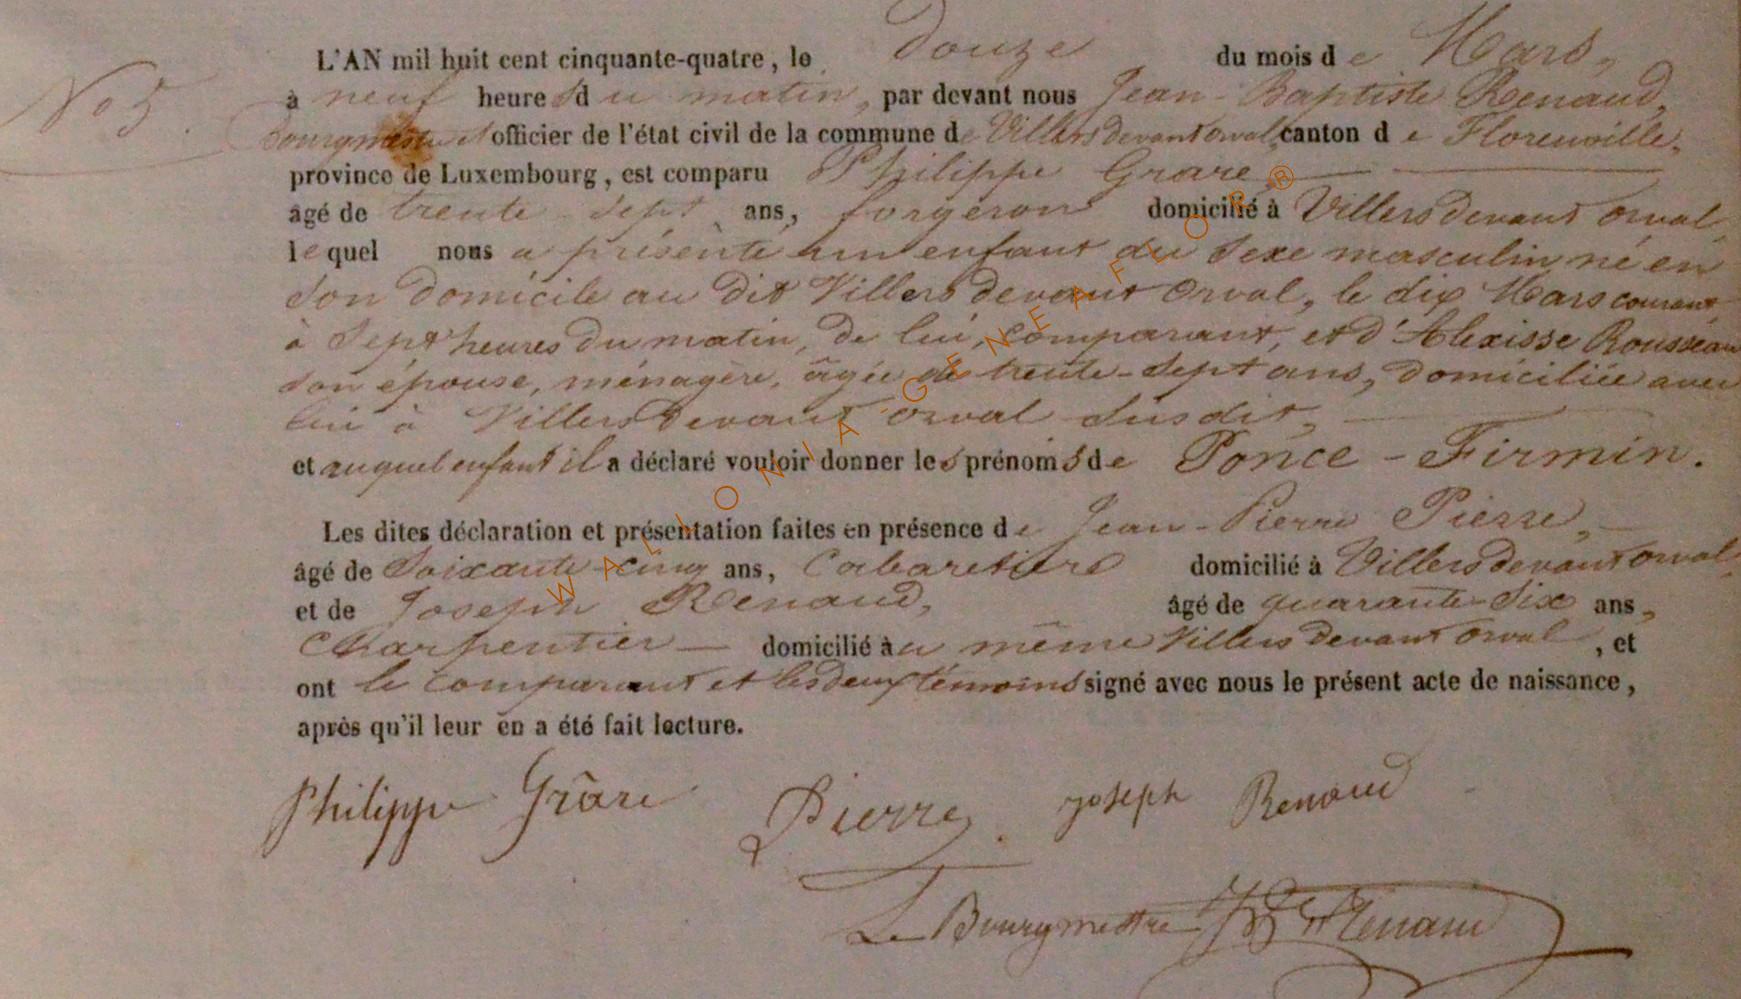 L'AN mil huit cent cinquante-quatre, le douze du mois de Mars,
N° 5.
à neuf heures du matin, par devant nous Jean-Baptiste Renaud,
bourgmestre et officier de l'état civil de la commune de Villers devant orval, canton de Florenville,
province de Luxembourg, est comparu Philippe Grare,
âgé de trente-sept ans, forgeron domicilié à Villers devant orval,
lequel nous a présenté un enfant du sexe masculin né en
son domicile au dit Villers devant Orval, le dix Mars courant
à sept heures du matin, de lui, comparant, et d'Alexisse Rousseau
son épouse, ménagère, âgée de trente-sept ans, domiciliée avec
lui à Villers devant orval susdit,
et auquel enfant il a déclaré vouloir donner les prénoms de Ponce-Firmin.
Les dites déclaration et présentation faites en présence de Jean-Pierre Pierre,
âgé de Soixante-cinq ans, Cabaretier domicilié à Villers devant orval,
et de Joseph Renaud, âgé de quarante-six ans,
Charpentier domicilié au même Villers devant Orval, et
ont le comparant et les deux témoins signé avec nous le présent acte de naissance,
après qu'il leur en a été fait lecture.
Philippe Grâre Pierre. Joseph Renaud
Le Bourgmestre JB Renaud
WALLONIA-GENEAFLOR®